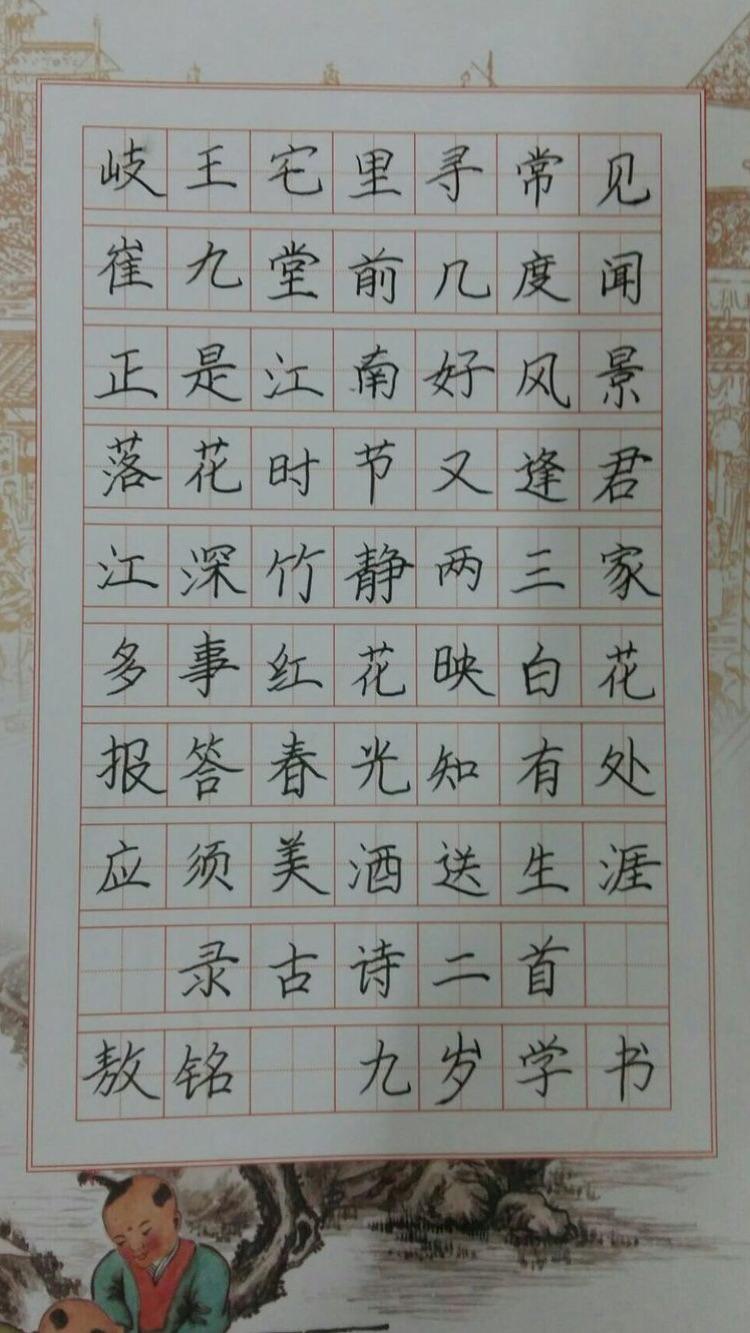 岐王宅里寻常见
崔九堂前几度闻
正是江南好风景
落花时节又逢君
江深竹静两三家
多事红花映白花
报答春光知有处
应须美酒送生涯
录古诗二首
敖铭 九岁学书